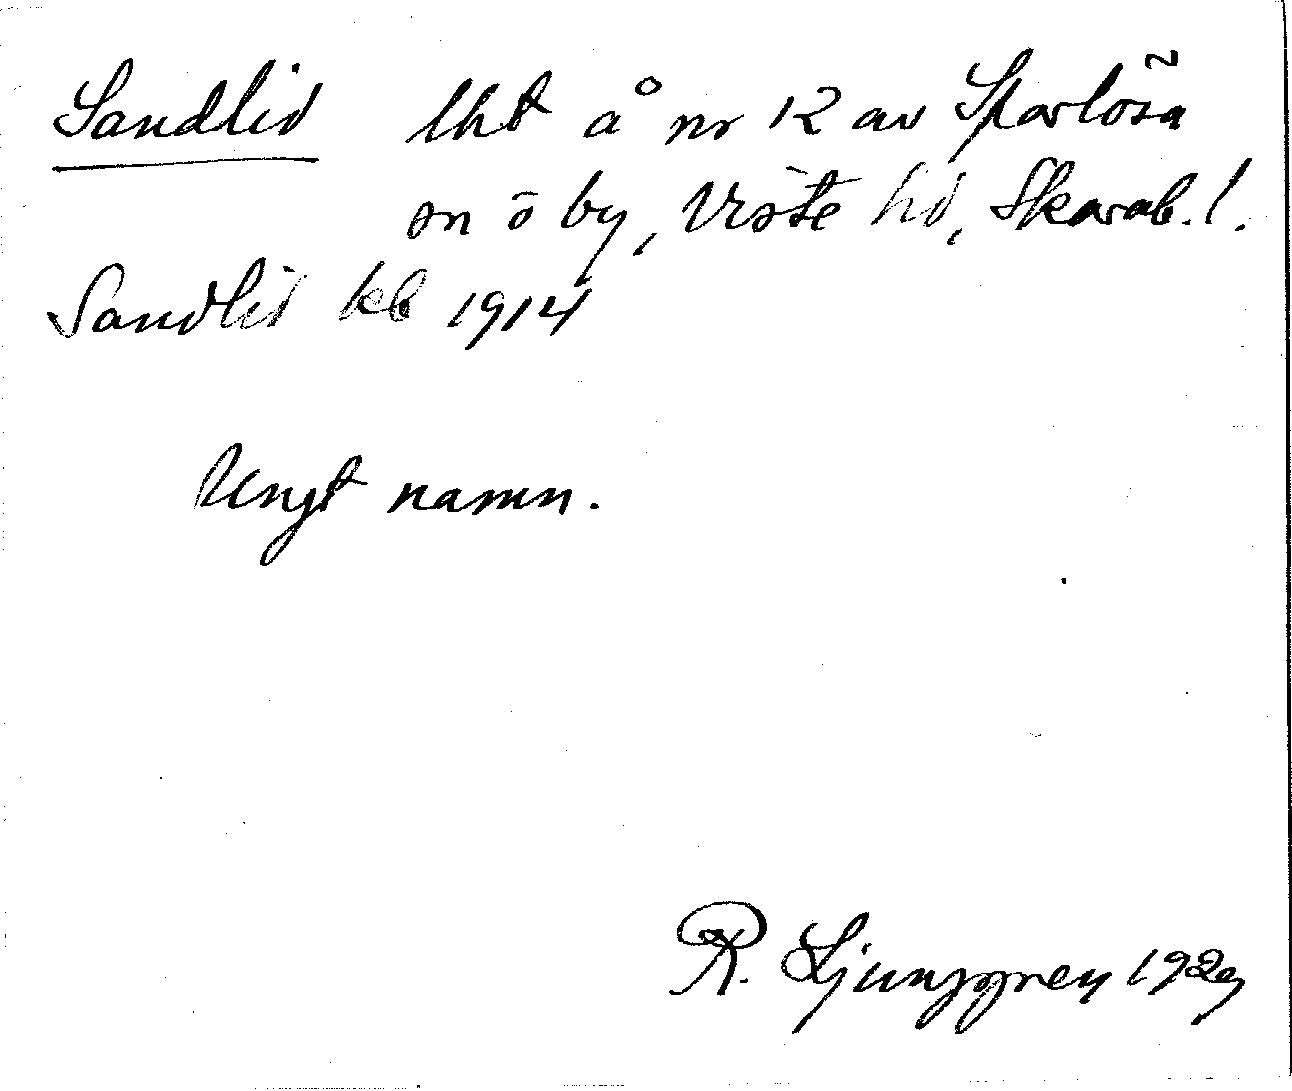 Sandlid lht å nr 12 av Sparlösa
sn o by, Viste hd, Skarab. l.
Sandlid kb 1914
Ungt namn.
R. Ljunggren 1929